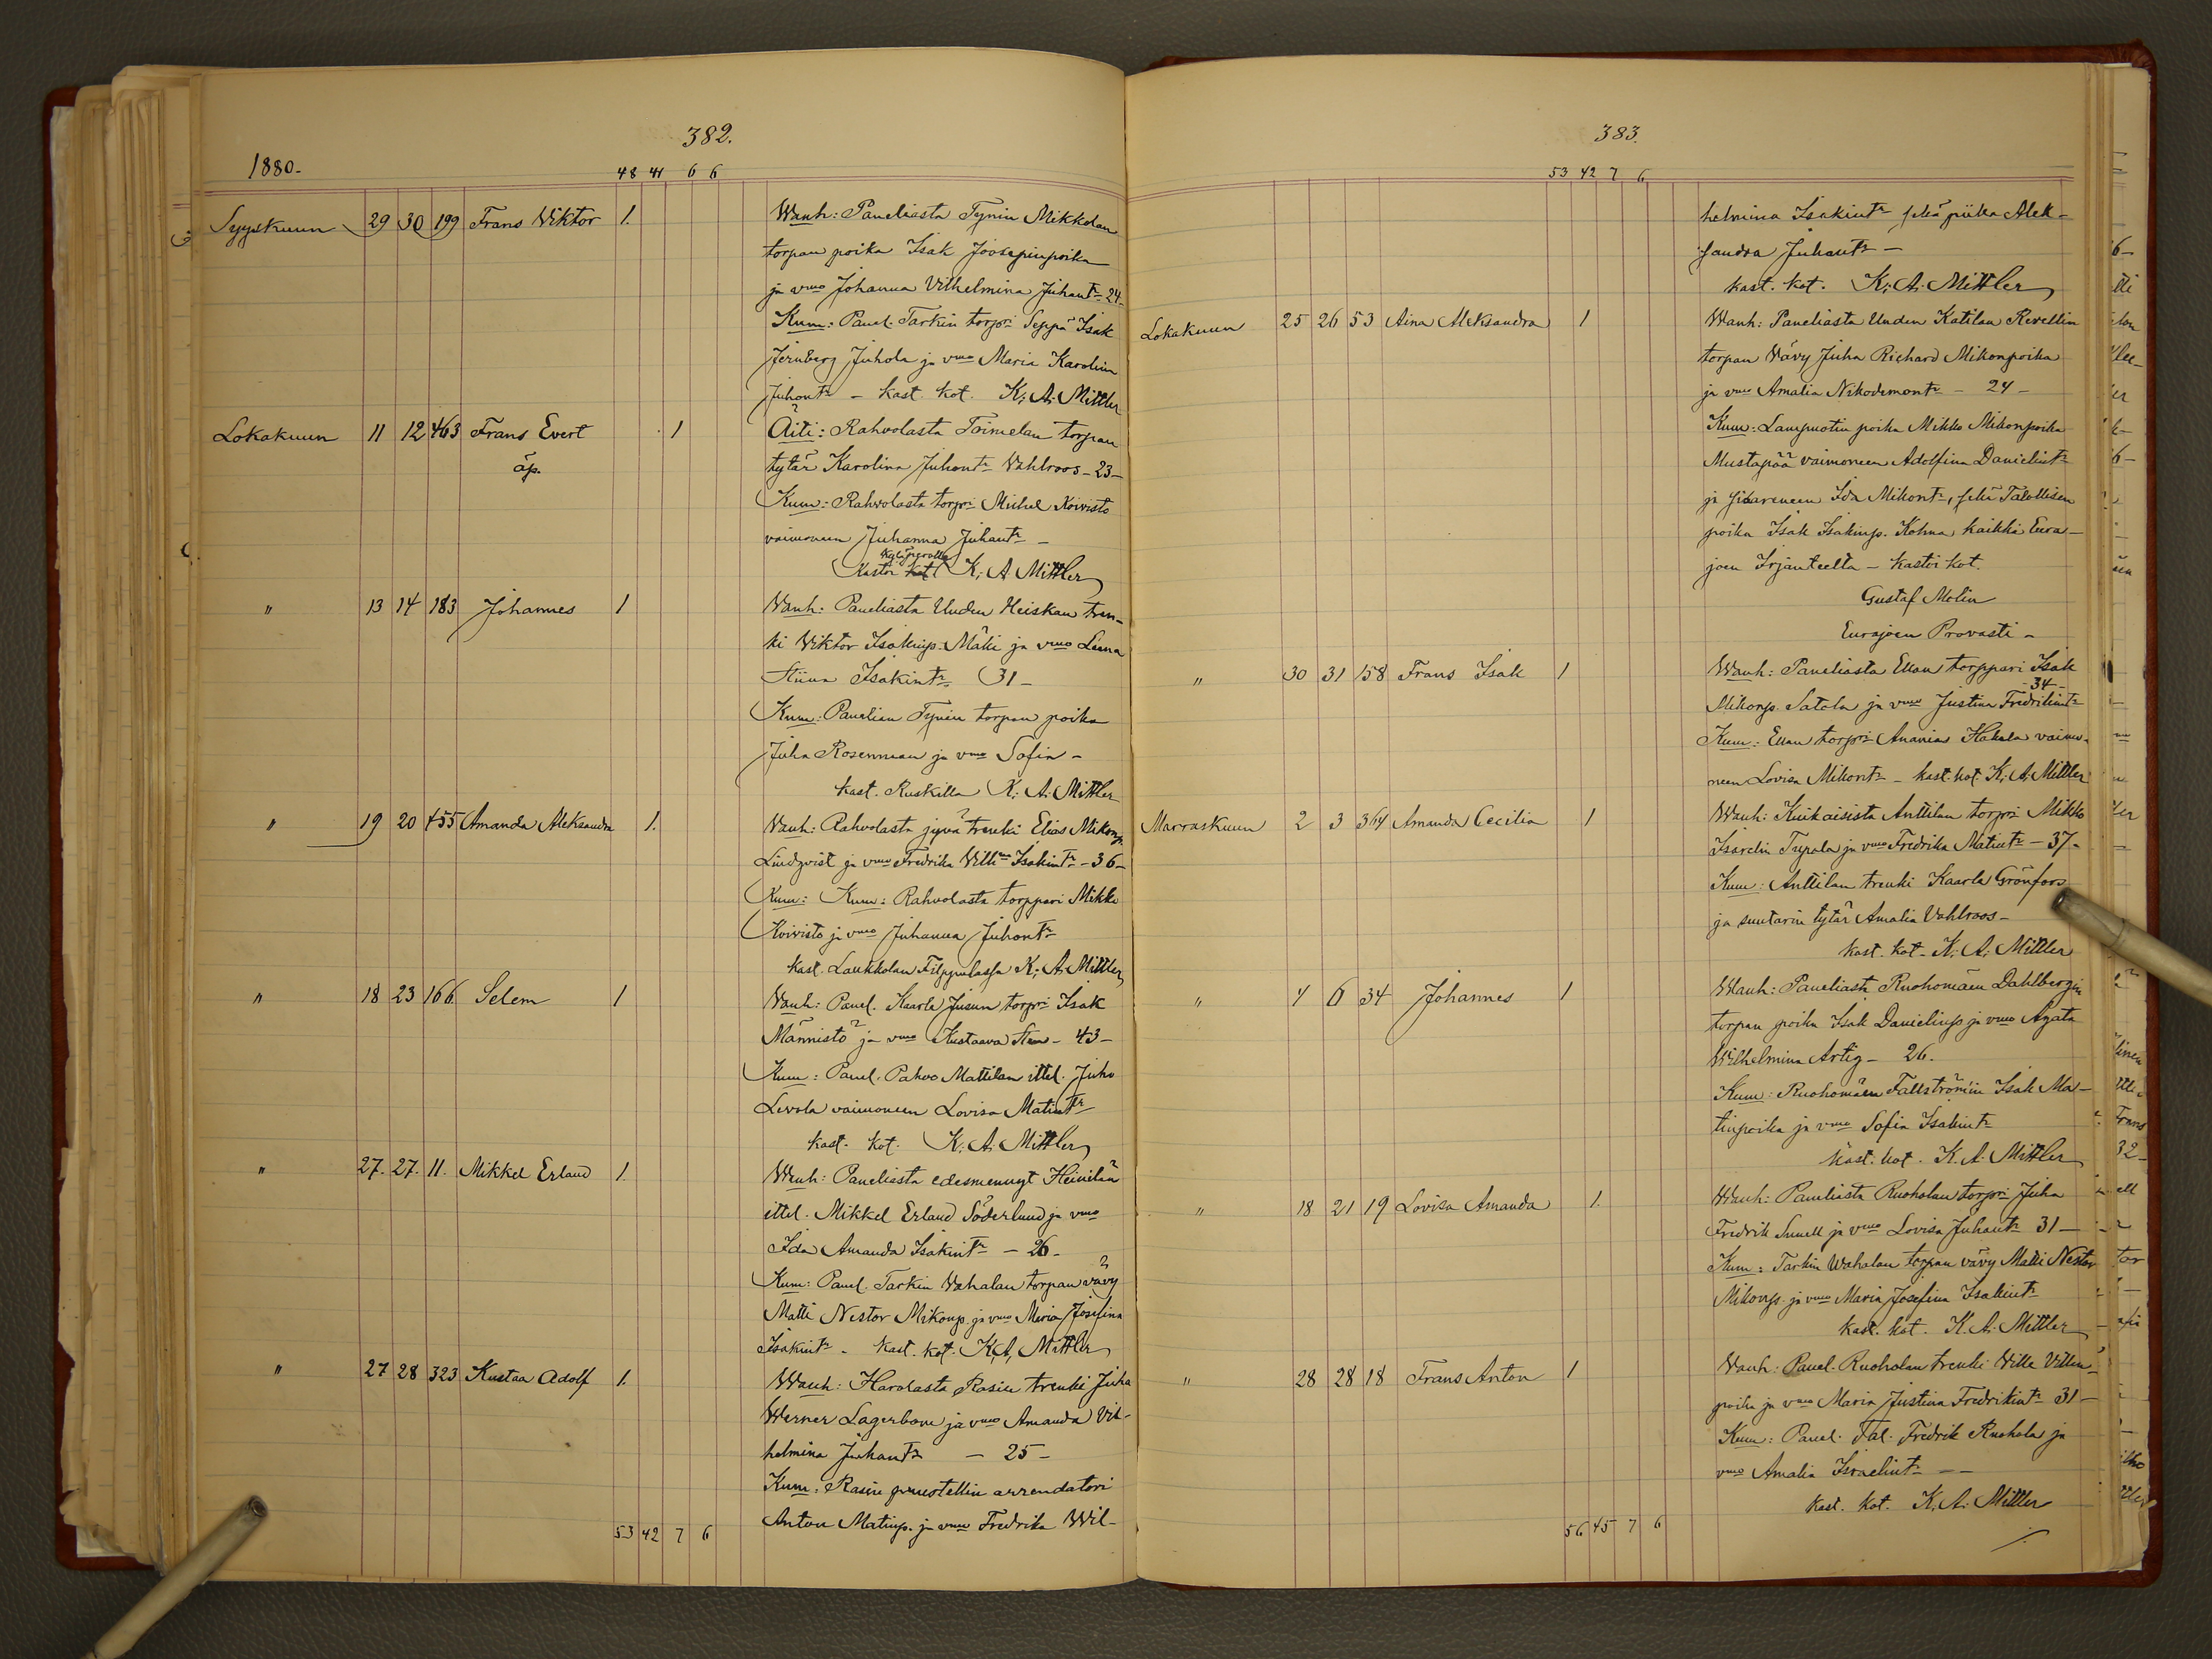 382.
1880.
48 41 6 6
Syyskuun 29 30 199 Frans Viktor 1. Wanh: Paneliasta Tynin Mikkolan
torpan poika Isak Joosepinpoika
ja vmo Johanna Vilhelmina Juhantr 24
Kum: Panel. Tarkin torpri Seppä Isak
Jernberg Juhola ja vmo Maria Karolina
Juhontr – kast. kot. K. A. Mittler
Lokakuun 11 12 463 Frans Evert 1 Äiti: Rahvolasta Toimelan torpan
äp. tytär Karolina Juhontr Vahlroos – 23 –
Kum: Rahvolasta torpri Mikel Koivisto
vaimoneen Juhanna Juhantr –
Kastoi kot K. A. Mittler
" 13 14 183 Johannes 1 Wanh: Paneliasta Uuden Heiskan tren-
ki Viktor Isakinp. Mäki ja vmo Leena
Stiina Isakintr 31 –
Kum: Panelian Tynin torpan poika
Juha Rosenman ja vmo Sofia –
kast. Ruskilla K. A. Mittler
" 19 20 455 Amanda Aleksandra 1. Vanh: Rahvolasta jyvä trenki Elias Mikonp.
Lindqvist ja vmo Fredrika Vilhma Isakintr – 36 –
Kum: Kum: Rahvolasta torppari Mikko
Koivisto ja vmo Juhanna Juhontr
kast. Laukkolan Filppulassa K. A. Mittler
" 18 23 166 Selem 1 Vanh: Panel. Kaarla Jusun torpri Isak
Männistö ja vmo Kustaava – 43 –
Kum: Panel. Pahvo Mattilan ittel. Juho
Levola vaimoneen Lovisa Matintr
kast. kot. K. A. Mittler
" 27. 27. 11. Mikkel Erland 1. Wanh: Paneliasta edesmennyt Heinilän
ittel. Mikkel Erland Söderlund ja vmo
Ida Amanda Isakintr – 26 –
Kum: Panel. Tarkin Vahalan torpan vävy
Matti Nestor Mikonp. ja vmo Maria Josefina
Isakintr – kast. kot. K. A. Mittler
" 27 28 323 Kustaa Adolf 1. Wanh: Harolasta Rasin trenki Juha
Werner Lagerbom ja vmo Amanda Vil-
helmina Juhantr – 25 –
Kum: Rasin puustellin arrendatori
Anton Matinp. ja vmo Fredrika Wil-
53 42 7 6
383.
53 42 7 6
helmina Isakintr sekä piika Alek-
sandra Juhantr –
kast. kot. K. A. Mittler
Lokakuun 25 26 53 Aina Aleksandra 1 Wanh: Paneliasta Uuden Katilan Revellin
torpan Vävy Juha Richard Mikonpoika
ja vmo Amalia Nikodemontr – 24 –
Kum: Lampuotin poika Mikko Mikonpoika
Mustapää vaimoneen Adolfina Danielintr
ja sisareneen Ida Mikontr, sekä Talollisen
poika Isak Isakinp. Kohna kaikki Eura-
joen Irjanteelta – kastoi kot.
Gustaf Molin
Eurajoen Provasti –
" 30 31 158 Frans Isak 1 Wanh: Paneliasta Ekan torppari Isak
– 34 –
Mikonp. Satola ja vmo Justina Fredrikintr
Kum: Ekan torpri Anania Hakala vaimo-
neen Lovisa Mikontr – kast. kot. K. A. Mittler
Marraskuun 2 3 364 Amanda Cecilia 1 Wanh: Kiukaisista Anttilan torpri Mikko
Israelin Tupala ja vmo Fredrika Matintr – 37 –
Kum: Anttilan trenki Kaarla Grönfors
ja suutarin tytär Amalia Vahlroos –
kast. kot – K. A. Mittler
" 4 6 34 Johannes 1 Wanh: Paneliasta Ruohomäen Dahlbergin
torpan poika Isak Danielinp ja vmo Agata
Wilhelmina Artig – 26.
Kum: Ruohomäen Fallströmin Isak Ma-
tinpoika ja vmo Sofia Isakintr
kast. kot. K. A. Mittler
" 18 21 19 Lovisa Amanda 1. Wanh: Paneliasta Ruoholan torpri Juha
Fredrik Snell ja vmo Lovisa Juhantr 31 –
Kum: Tarkin Wahalan torpan vävy Matti Nestor
Mikonp. ja vmo Maria Josefina Isakintr
kast. kot. K. A. Mittler
" 28 28 18 Frans Anton 1 Vanh: Panel. Ruoholan trenki Ville Villen-
poika ja vmo Maria Justina Fredrikintr 31 –
Kum: Panel. Tal. Fredrik Ruohola ja
vmo Amalia Israelintr –
kast. kot. K. A. Mittler
56 45 7 6